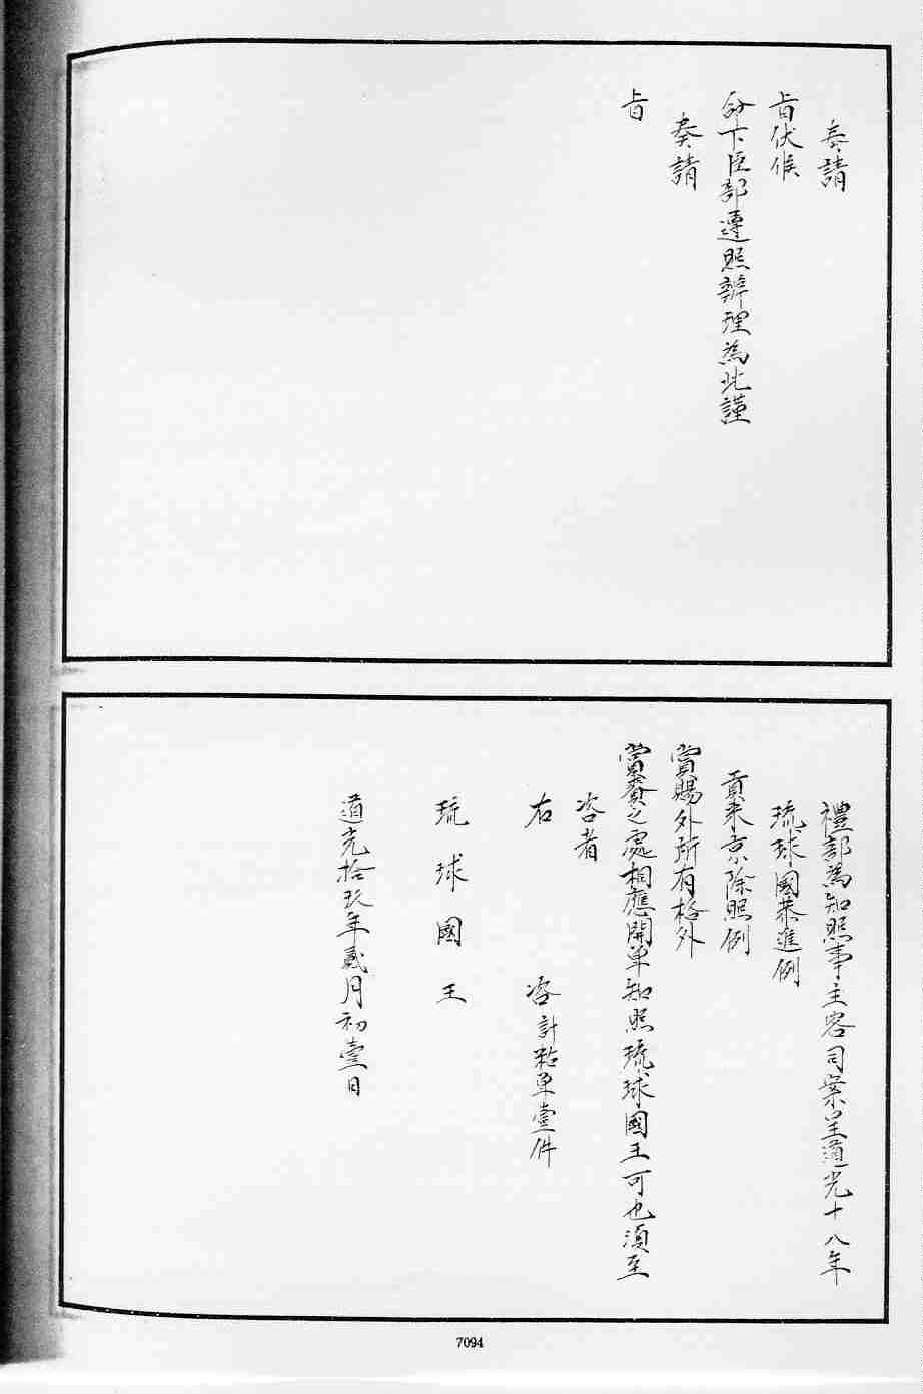 奏請
旨伏候
命下臣部遵照辦理為此謹
奏請
旨
禮部為知照事主客司案呈道光十八年
琉球國恭進例
貢来京除照例
賞賜外所有格外
賞賚之處相應開单知照琉球國王可也須至
咨者
右　咨計粘单壹件
琉球國王
道光拾玖年貳月初壹日
7094